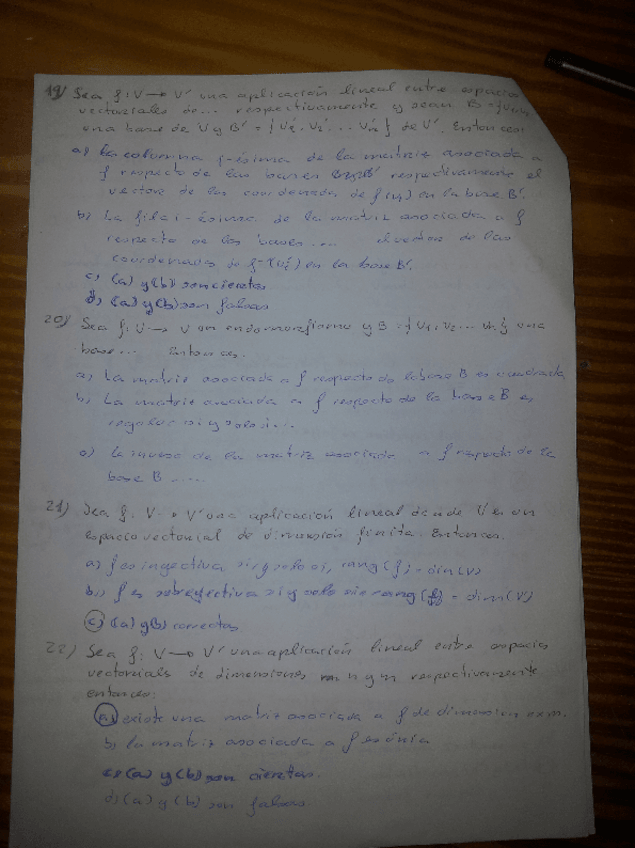 19) Sea f: V → V' una aplicación lineal entre espacios
vectoriales de ... respectivamente y sean B = {
una base de V y B' = {v'1, v'2 ... v'm} de V'. Entonces:
a) La columna j-ésima de la matriz asociada a
f respecto de las bases B y B' respectivamente el
vector de las coordenadas de f(vj) en la base B'.
b) La fila i-ésima de la matriz asociada a f
respecto de las bases .... el vector de las
coordenadas de en la base B'.
c) (a) y (b) son ciertas
d) (a) y (b) son falsas
20) Sea f: V → V un endomorfismo y B = {v1, v2 ... } una
base ... Entonces.
a) La matriz asociada a f respecto de la base B es cuadrada
b) La matriz asociada a f respecto de la base B es
regular si y solo si ...
c) La inversa de la matriz asociada a f respecto de la
base B .....
21) Sea f: V → V' una aplicación lineal donde V es un
espacio vectorial de dimensión finita. Entonces.
a) f es inyectiva si y solo si, rang(f) = dim(V)
b) f es sobreyectiva si y solo si rang(f) = dim(V')
c) (a) y (b) correctas
22) Sea f: V → V' una aplicación lineal entre espacios
vectoriales de dimensiones n y m respectivamente
entonces:
a) existe una matriz asociada a f de dimension nxm.
b) la matriz asociada a f es única
c) (a) y (b) son ciertas.
d) (a) y (b) son falsas